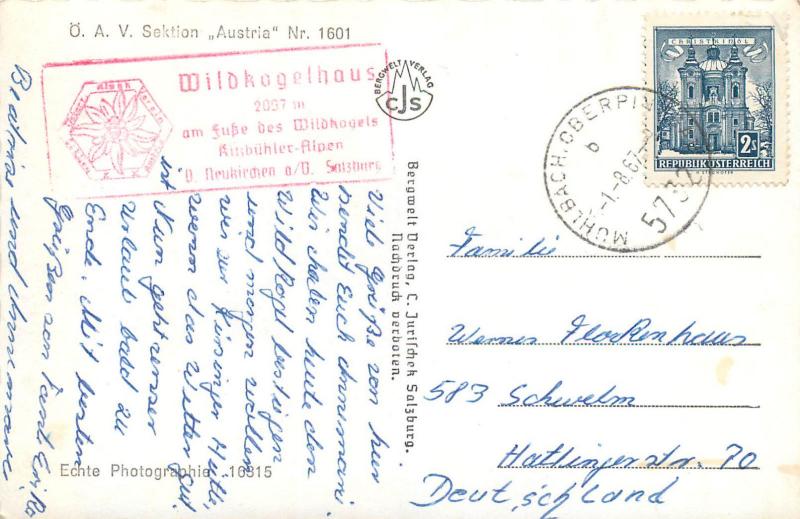 Ö. A. V. Sektion „Austria" Nr. 1601
Wildkogelhaus
2007 m
am Fuße des Wildkogels
Kitzbühler-Alpen
P. Neukirchen a/V. Salzburg
BERGWELT VERLAG
CJS
CHRISTKINDL
2S
REPUBLIK ÖSTERREICH
MÜHLBACH, OBERPI
b
-1.-8.67
5732
Viele Grüße von hier
sendet Euch Annemarie
Wir haben heute den
Wildkogl bestiegen
und morgen wollen
wir zur Kürsinger Hütte,
wenn das Wetter gut
ist. Nun geht unser
Urlaub bald zu
Ende. Mit besten
Grüßen von Tante Erika
Beatrix und Annemarie
Bergwelt Verlag, C. Jurischek Salzburg.
Nachdruck verboten.
Familie
Werner Flockenhaus
583 Schwelm
Hattingerstr. 70
Deutschland
Echte Photographie 16315